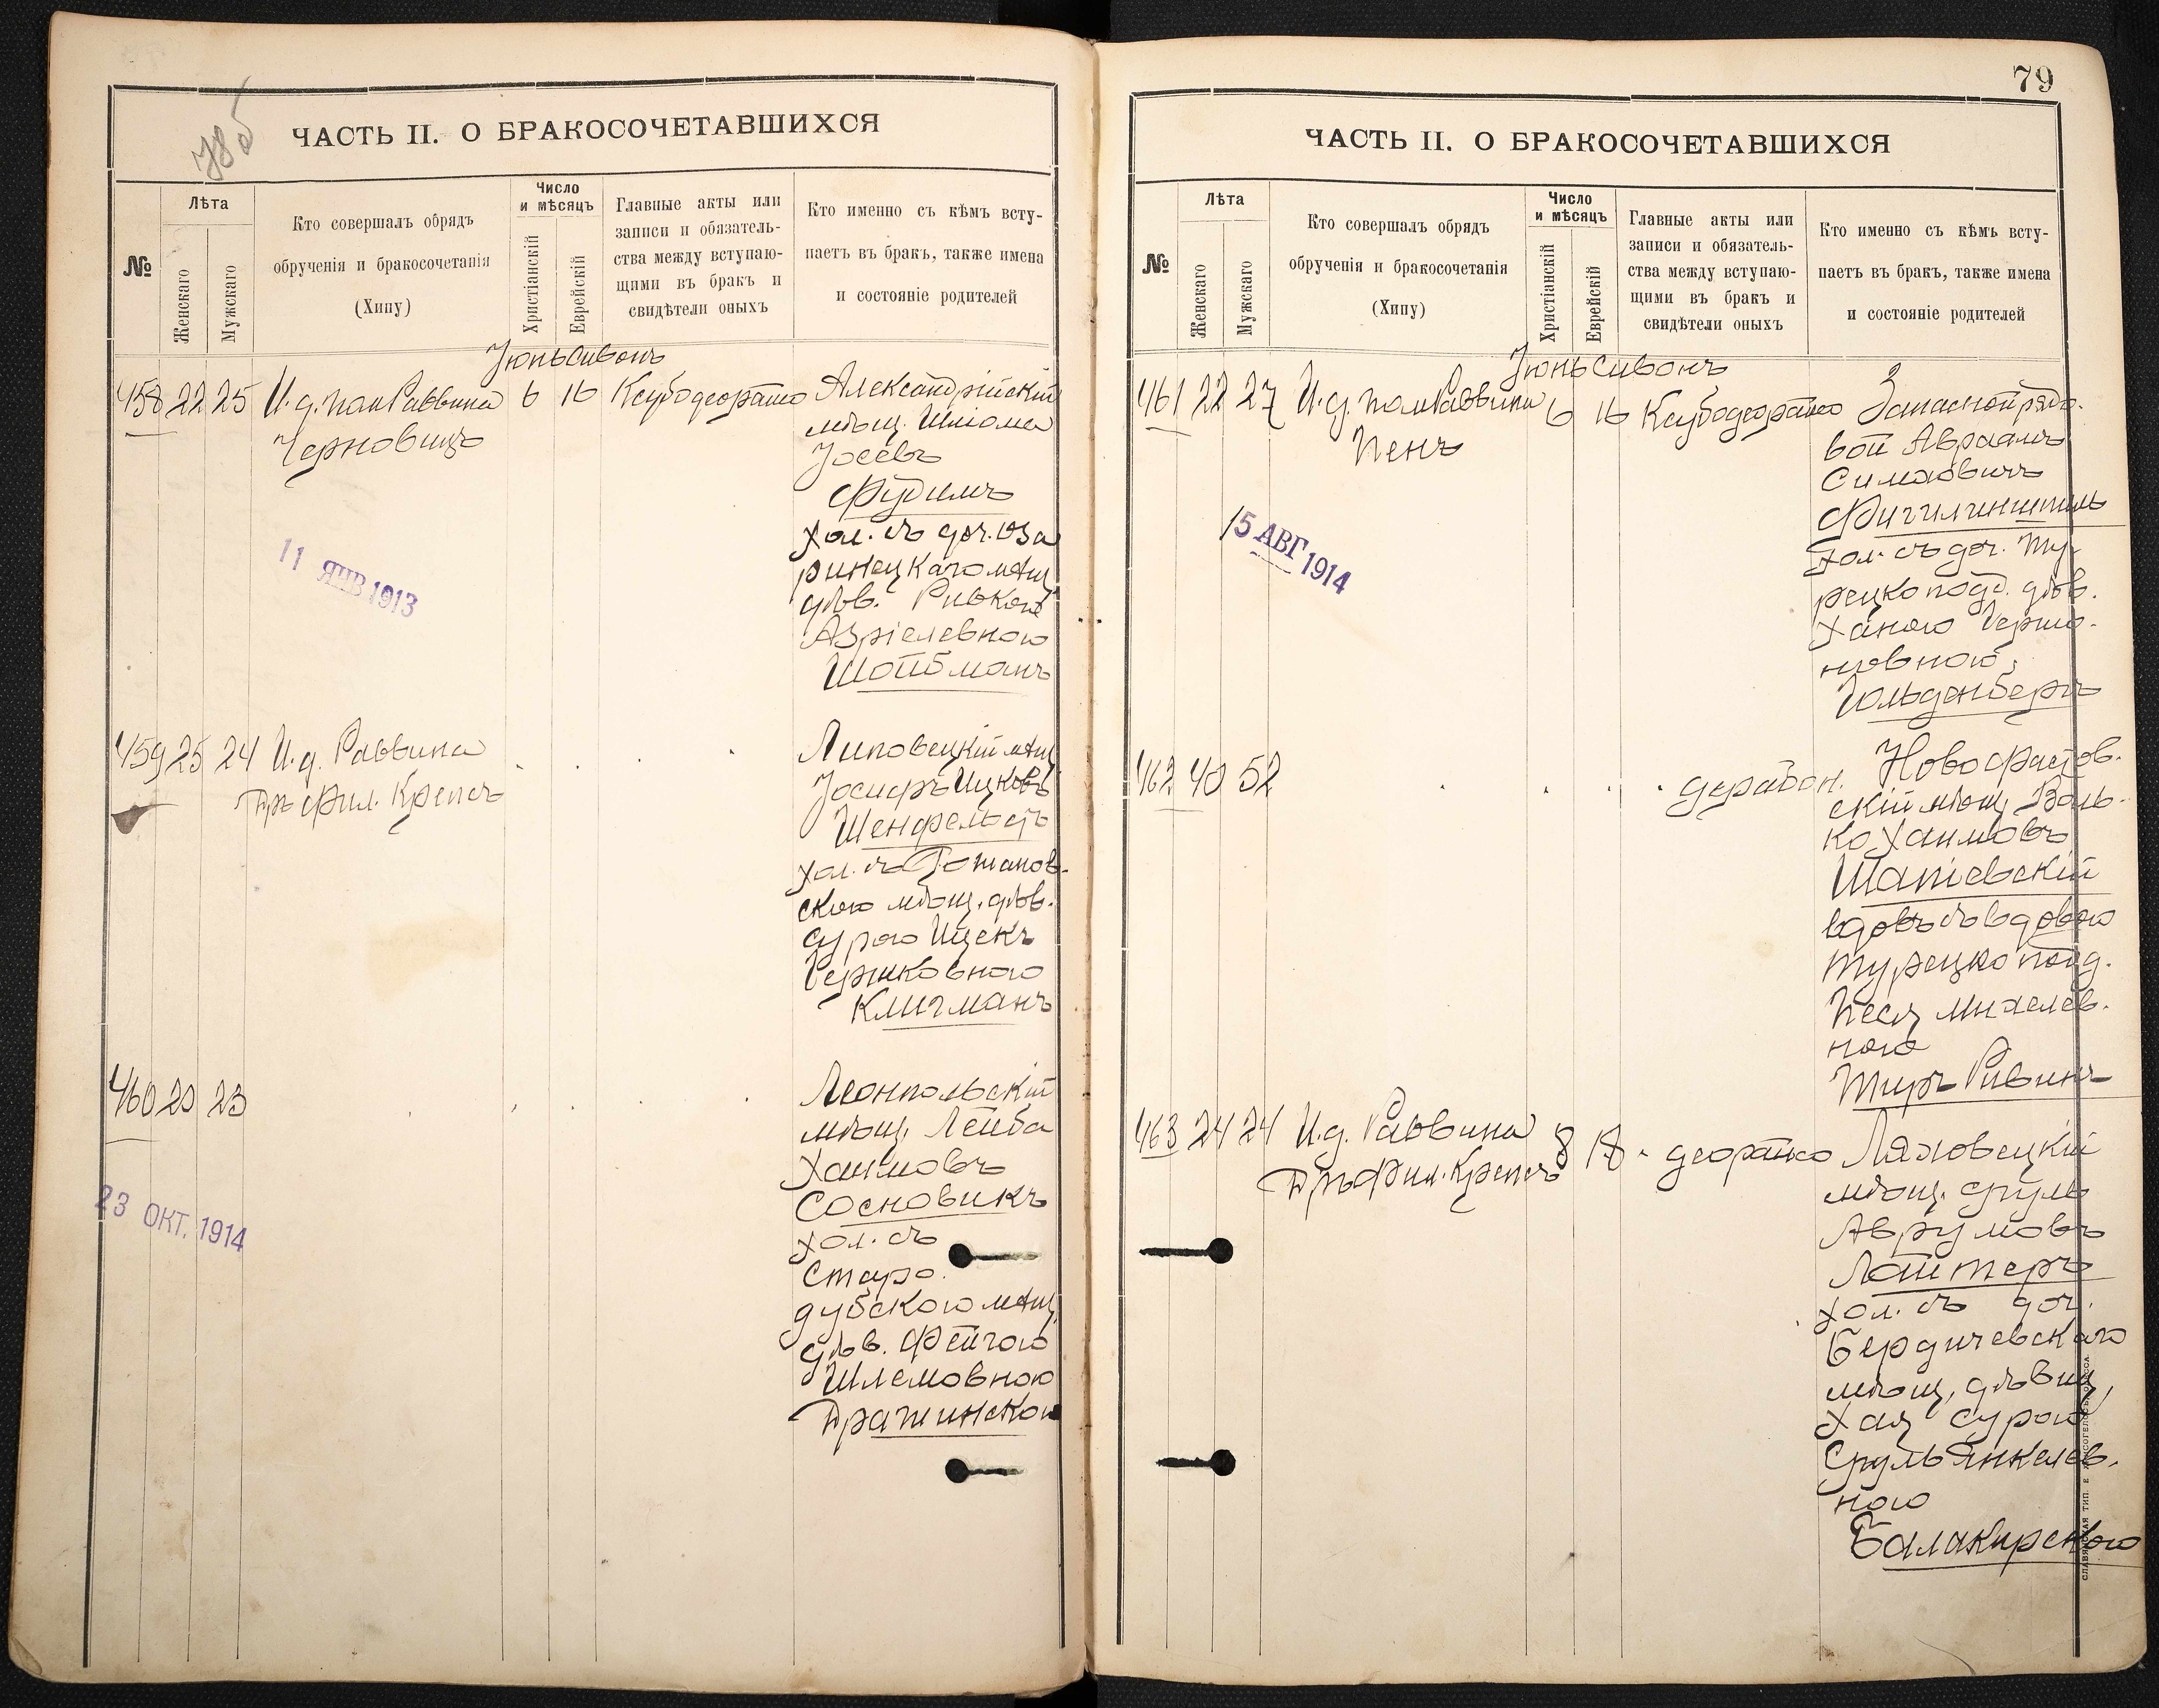 78 об
ЧАСТЬ II. О БРАКОСОЧЕТАВШИХСЯ
№
Лѣта
Женскаго
Мужскаго
Кто совершалъ обрядъ
обрученія и бракосочетанія
(Хипу)
Число
и мѣсяцъ
Христіанскій
Еврейскій
Главные акты или
записи и обязатель-
ства между вступаю-
щими въ бракъ и
свидѣтели оныхъ
Кто именно съ кѣмъ всту-
паетъ въ бракъ, также имена
и состояніе родителей
Іюнь Сивонъ
458 22 25 И. д. пом Раввина 6 16 Ксубодеорайсо Александрійскій
Черновицъ
мѣщ. Шліома
Іосевъ
Фудимъ
хол. съ доч. Оза
ринецкаго мѣщ.
дѣв. Ривкою
Азріелевною
Шойбманъ
11 ЯНВ 1913
459 25 24 И. д. Раввина
Дръ Фил. Крепсъ
Липовецкій мѣщ
Іосифъ Ицковъ
Шенфельдъ
хол. съ Рожанов-
скою мѣщ. дѣв.
Сурою Ицекъ
Гершковною
Клигманъ
460 20 23
Леонпольскій
мѣщ. Лейба
Хаимовъ
Сосновикъ
хол. съ
Старо
дубскою мѣщ.
дѣв. Фейгою
Шлемовною
Дражинскою
23 ОКТ. 1914
79
ЧАСТЬ II. О БРАКОСОЧЕТАВШИХСЯ
№
Лѣта
Женскаго
Мужскаго
Кто совершалъ обрядъ
обрученія и бракосочетанія
(Хипу)
Число
и мѣсяцъ
Христіанскій
Еврейскій
Главные акты или
записи и обязатель-
ства между вступаю-
щими въ бракъ и
свидѣтели оныхъ
Кто именно съ кѣмъ всту-
паетъ въ бракъ, также имена
и состояніе родителей
Іюнь Сивонъ
461 22 27 И. д. пом Раввина 6 16 Ксубодеорайсо Запасной рядо-
Пенъ
вой Авраамъ
Симховичъ
Фигилинштиль
хол. съ доч. Ту-
рецко подд. дѣв.
Ханою Гершо-
новною
Гольденбергъ
15 АВГ 1914
462 40 52 дерабон. Новофастов-
скій мѣщ Воль-
ко Хаимовъ
Шапіевскій
вдовъ съ вдовою
Турецко подд.
Песя Михелев-
ною
Тиръ Ривинъ
463 24 24 И. д. Раввина 8 18 деорайсо Ляховецкій
Дръ Фил. Крепсъ
мѣщ. Сруль
Аврумовъ
Лойтеръ
хол. съ доч.
Бердичевскаго
мѣщ, дѣвиц,
Хая Сурою
Сруль Янкелев-
ною
Балакирскою